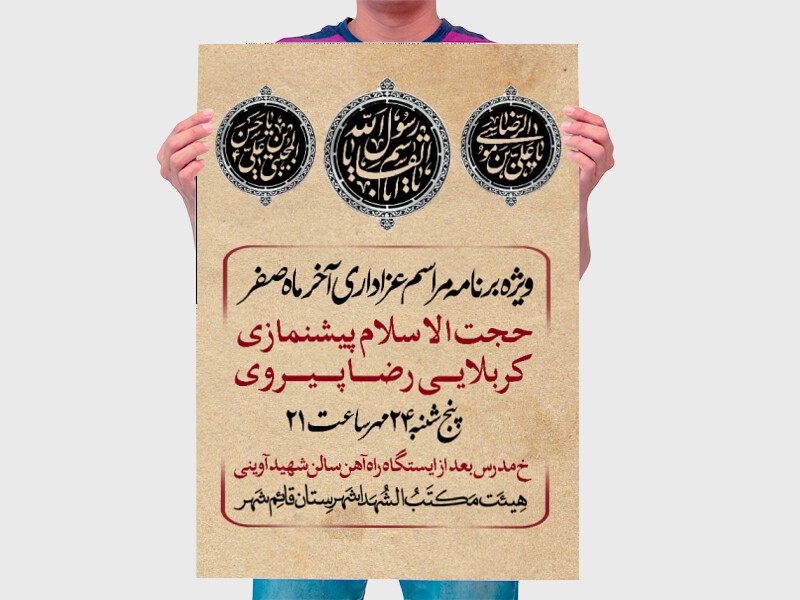 یا علی بن موسی الرضا
یا ابا القاسم یا رسول الله
یا حسن بن علی المجتبی
ویژه برنامه مراسم عزاداری آخر ماه صفر
حجت الاسلام پیشنمازی
کربلایی رضا پیروی
پنج شنبه ۲۴ مهر ساعت ۲۱
خ مدرس بعد از ایستگاه راه آهن سالن شهید آوینی
هیئت مکتب الشهدا شهرستان قائم شهر